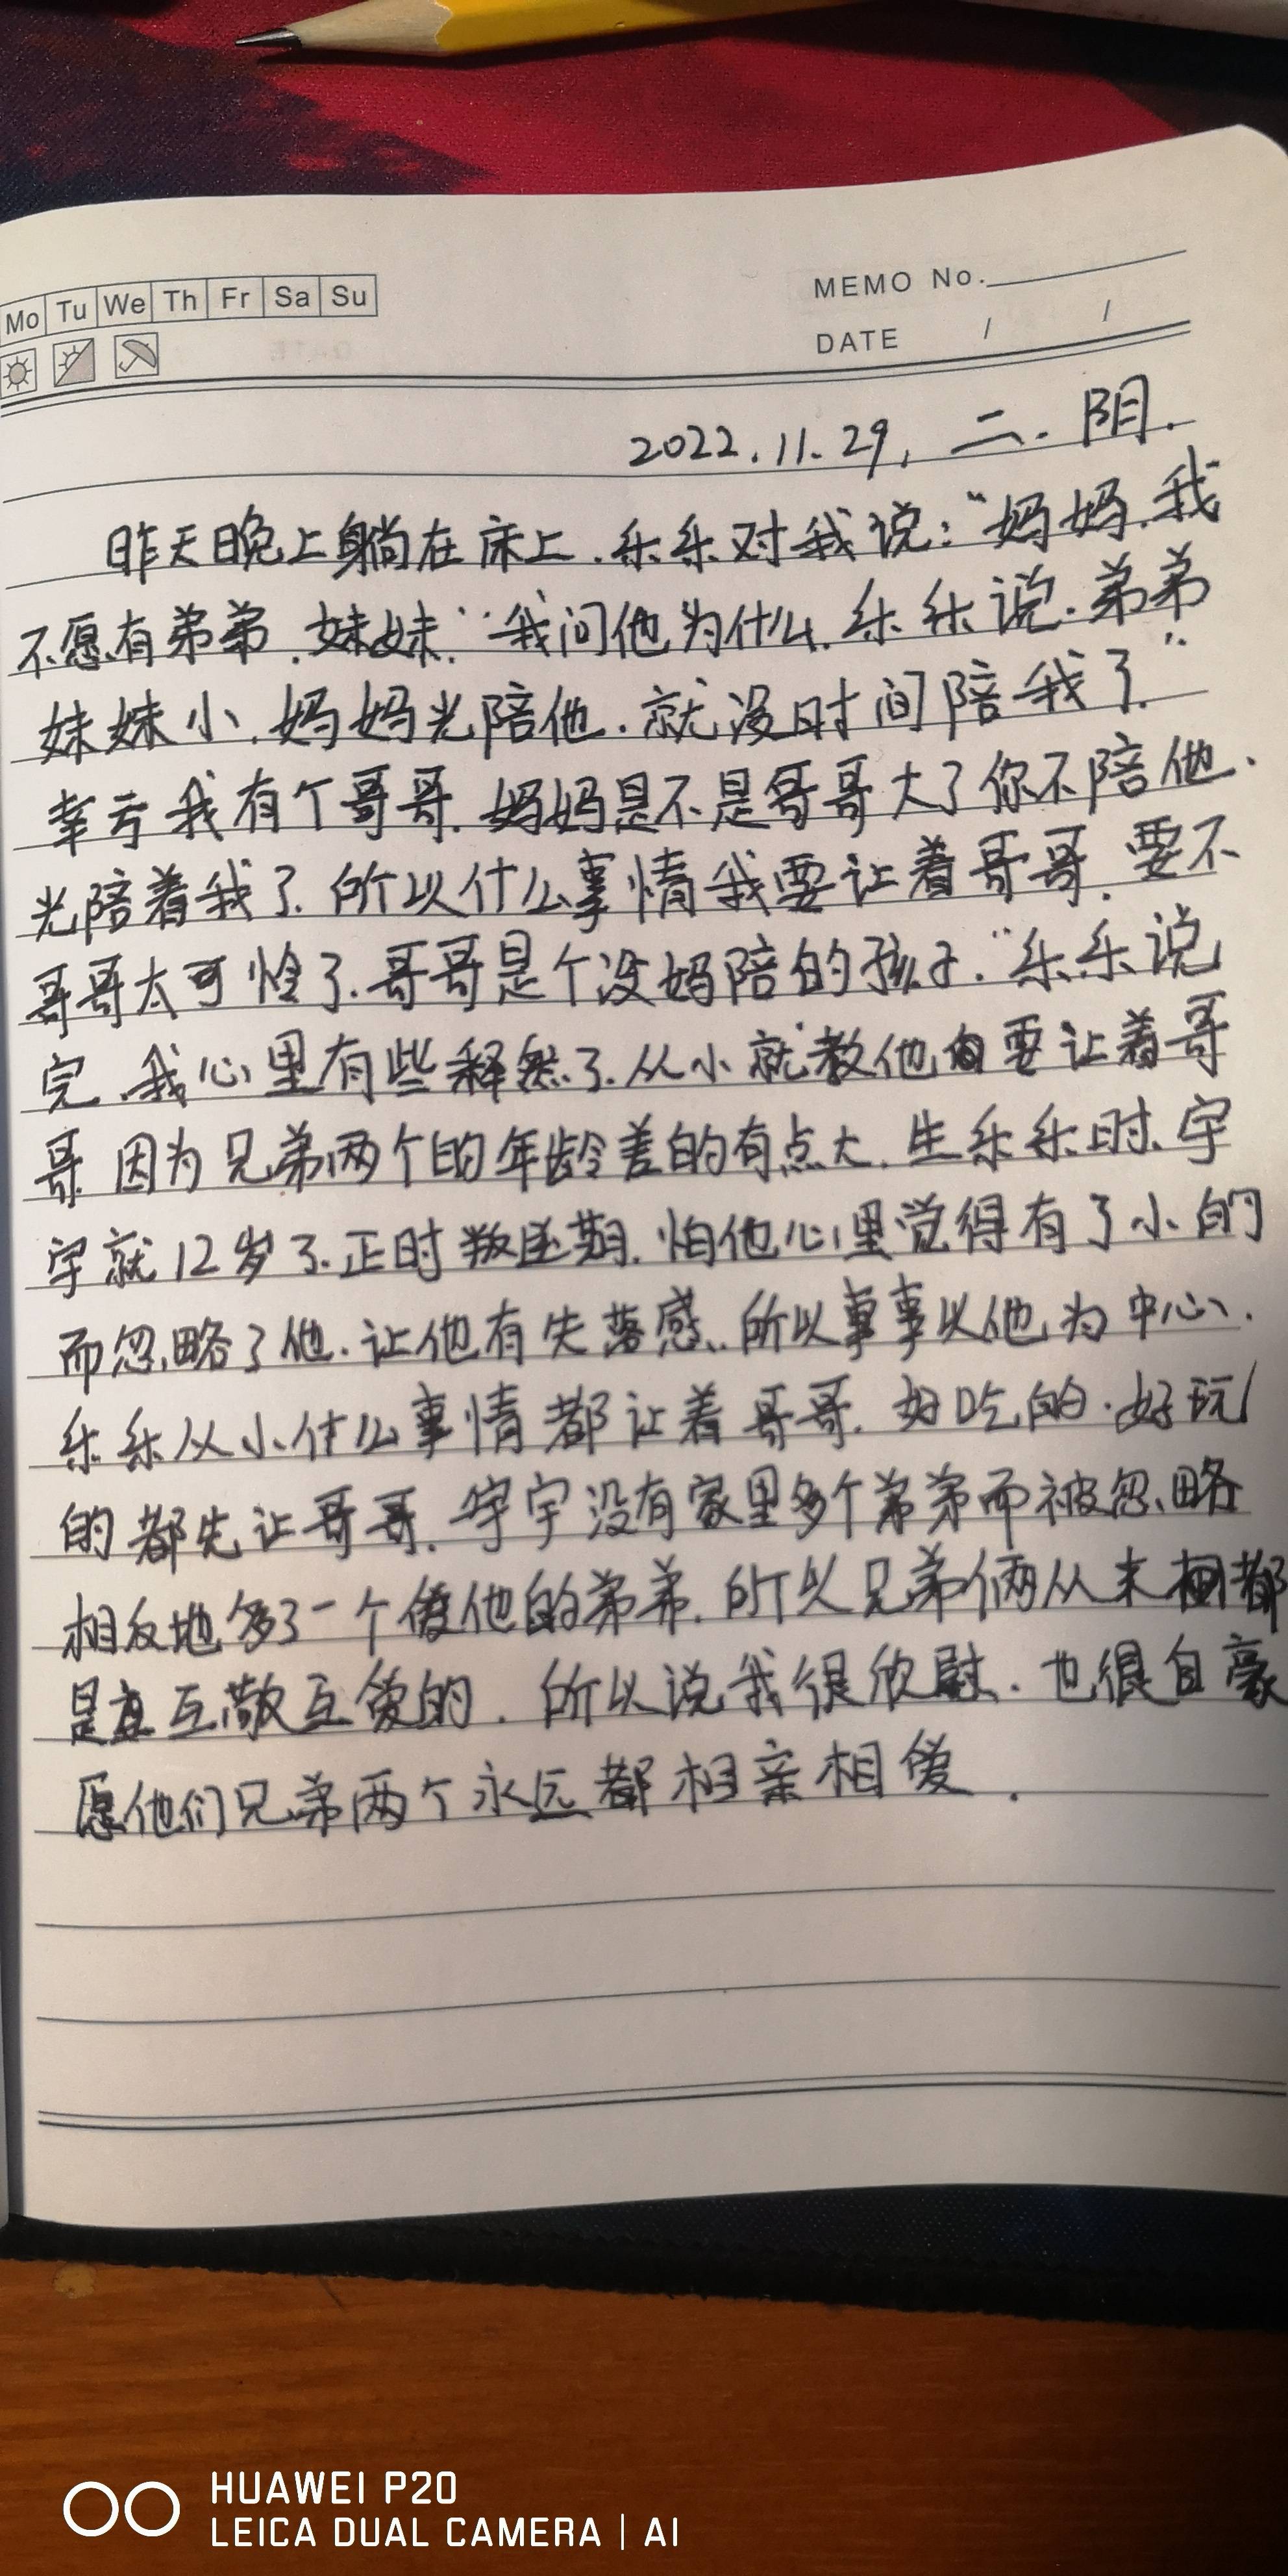 Mo Tu We Th Fr Sa Su
MEMO No.
DATE / /
2022.11.29, 二. 阴.
昨天晚上躺在床上.乐乐对我说:“妈妈.我
不愿有弟弟.妹妹.”我问他为什么.乐乐说.弟弟
妹妹小.妈妈光陪他.就没时间陪我了.”
幸亏我有个哥哥.妈妈是不是哥哥大了你不陪他.
光陪着我了.所以什么事情我要让着哥哥.要不
哥哥太可怜了.哥哥是个没妈陪的孩子.“乐乐说
完.我心里有些释然了.从小就教他要让着哥
哥.因为兄弟两个的年龄差的有点大.生乐乐时.宇
宇就12岁了.正时叛逆期.怕他心里觉得有了小的
而忽略了他.让他有失落感.所以事事以他为中心.
乐乐从小什么事情都让着哥哥.好吃的.好玩
的都先让哥哥.宇宇没有家里多个弟弟而被忽略
相反地多了一个傻他的弟弟.所以兄弟俩从来都
是互敬互爱的.所以说我很欣慰.也很自豪
愿他们兄弟两个永远都相亲相爱.
HUAWEI P20
LEICA DUAL CAMERA | AI